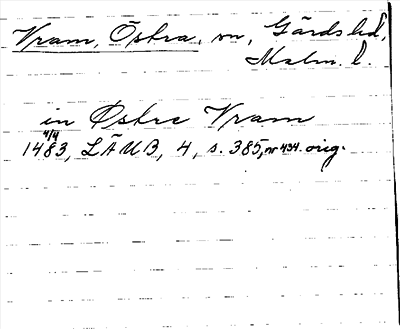 Vram, Östra, sn, Gärds hd,
Malm. l.
in Østre Vram
4/4
1483, LÄUB, 4, s. 385, nr 434. orig.